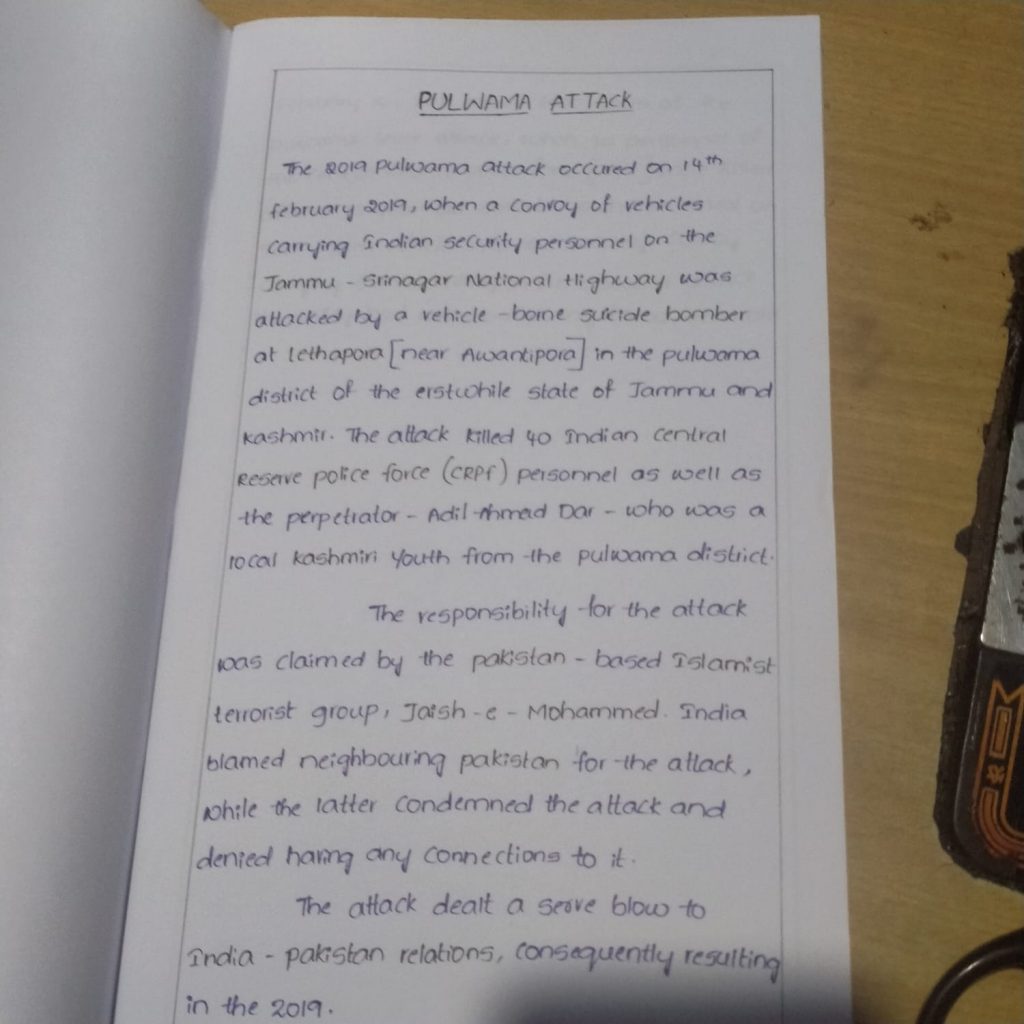 PULWAMA ATTACK
The 2019 pulwama attack occured on 14th
february 2019, when a convoy of vehicles
carrying Indian security personnel on the
Jammu - Srinagar National Highway was
attacked by a vehicle - borne suicide bomber
at lethapora [near Awantipora] in the pulwama
district of the erstwhile state of Jammu and
kashmir. The attack killed 40 Indian central
Reserve police force (CRPf) personnel as well as
the perpetrator - Adil Ahmad Dar - who was a
local kashmiri youth from the pulwama district.
The responsibility for the attack
was claimed by the pakistan - based Islamist
terrorist group, Jaish - e - Mohammed. India
blamed neighbouring pakistan for the attack,
while the latter condemned the attack and
denied having any connections to it.
The attack dealt a serve blow to
India - pakistan relations, consequently resulting
in the 2019.